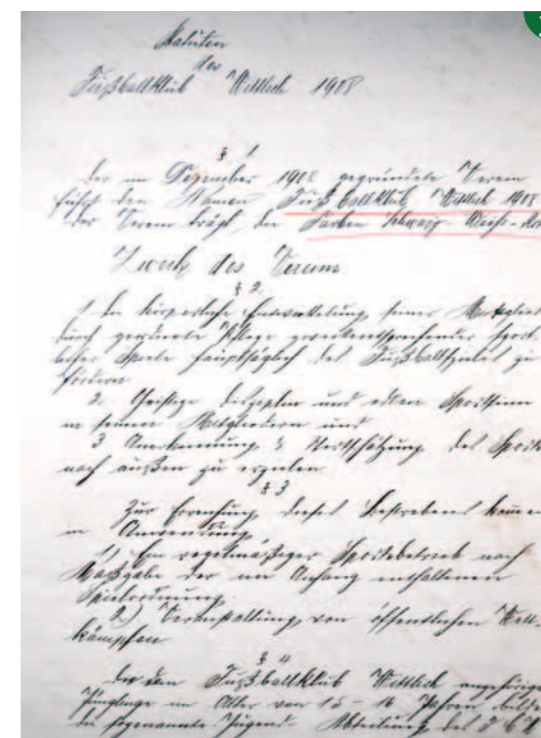 Statuten
des
Fußballklub Wittlich 1908
§ 1
Der im Dezember 1908 gegründete Verein
führt den Namen Fußballklub Wittlich 1908
der Verein trägt die Farben Schwarz Weiß-Rot
Zweck des Vereins
§ 2
1 Die körperliche Entwickelung seiner Mitglied
durch geordnete Pflege zweckentsprechender Sport
Spiele hauptsächlich des Fußballspiels zu
fördern
2. Geistige Disziplin und edlen Sportsinn
in seinen Mitgliedern und
3 Anerkennung & Wertschätzung des Sports
nach außen zu erzielen
§ 3
Zur Erreichung dieses Bestrebens kommen
in Anwendung
1) Ein regelmäßiger Sportsbetrieb nach
Maßgabe der im Anhang enthaltenen
Spielordnung
2.) Veranstaltung von öffentlichen Wett-
kämpfen
§ 4
Die dem Fußballklub Wittlich angehörige
Jünglinge im Alter von 15 - 16 Jahren bilde
die sogenannte Jugend-Abteilung des F. K. W